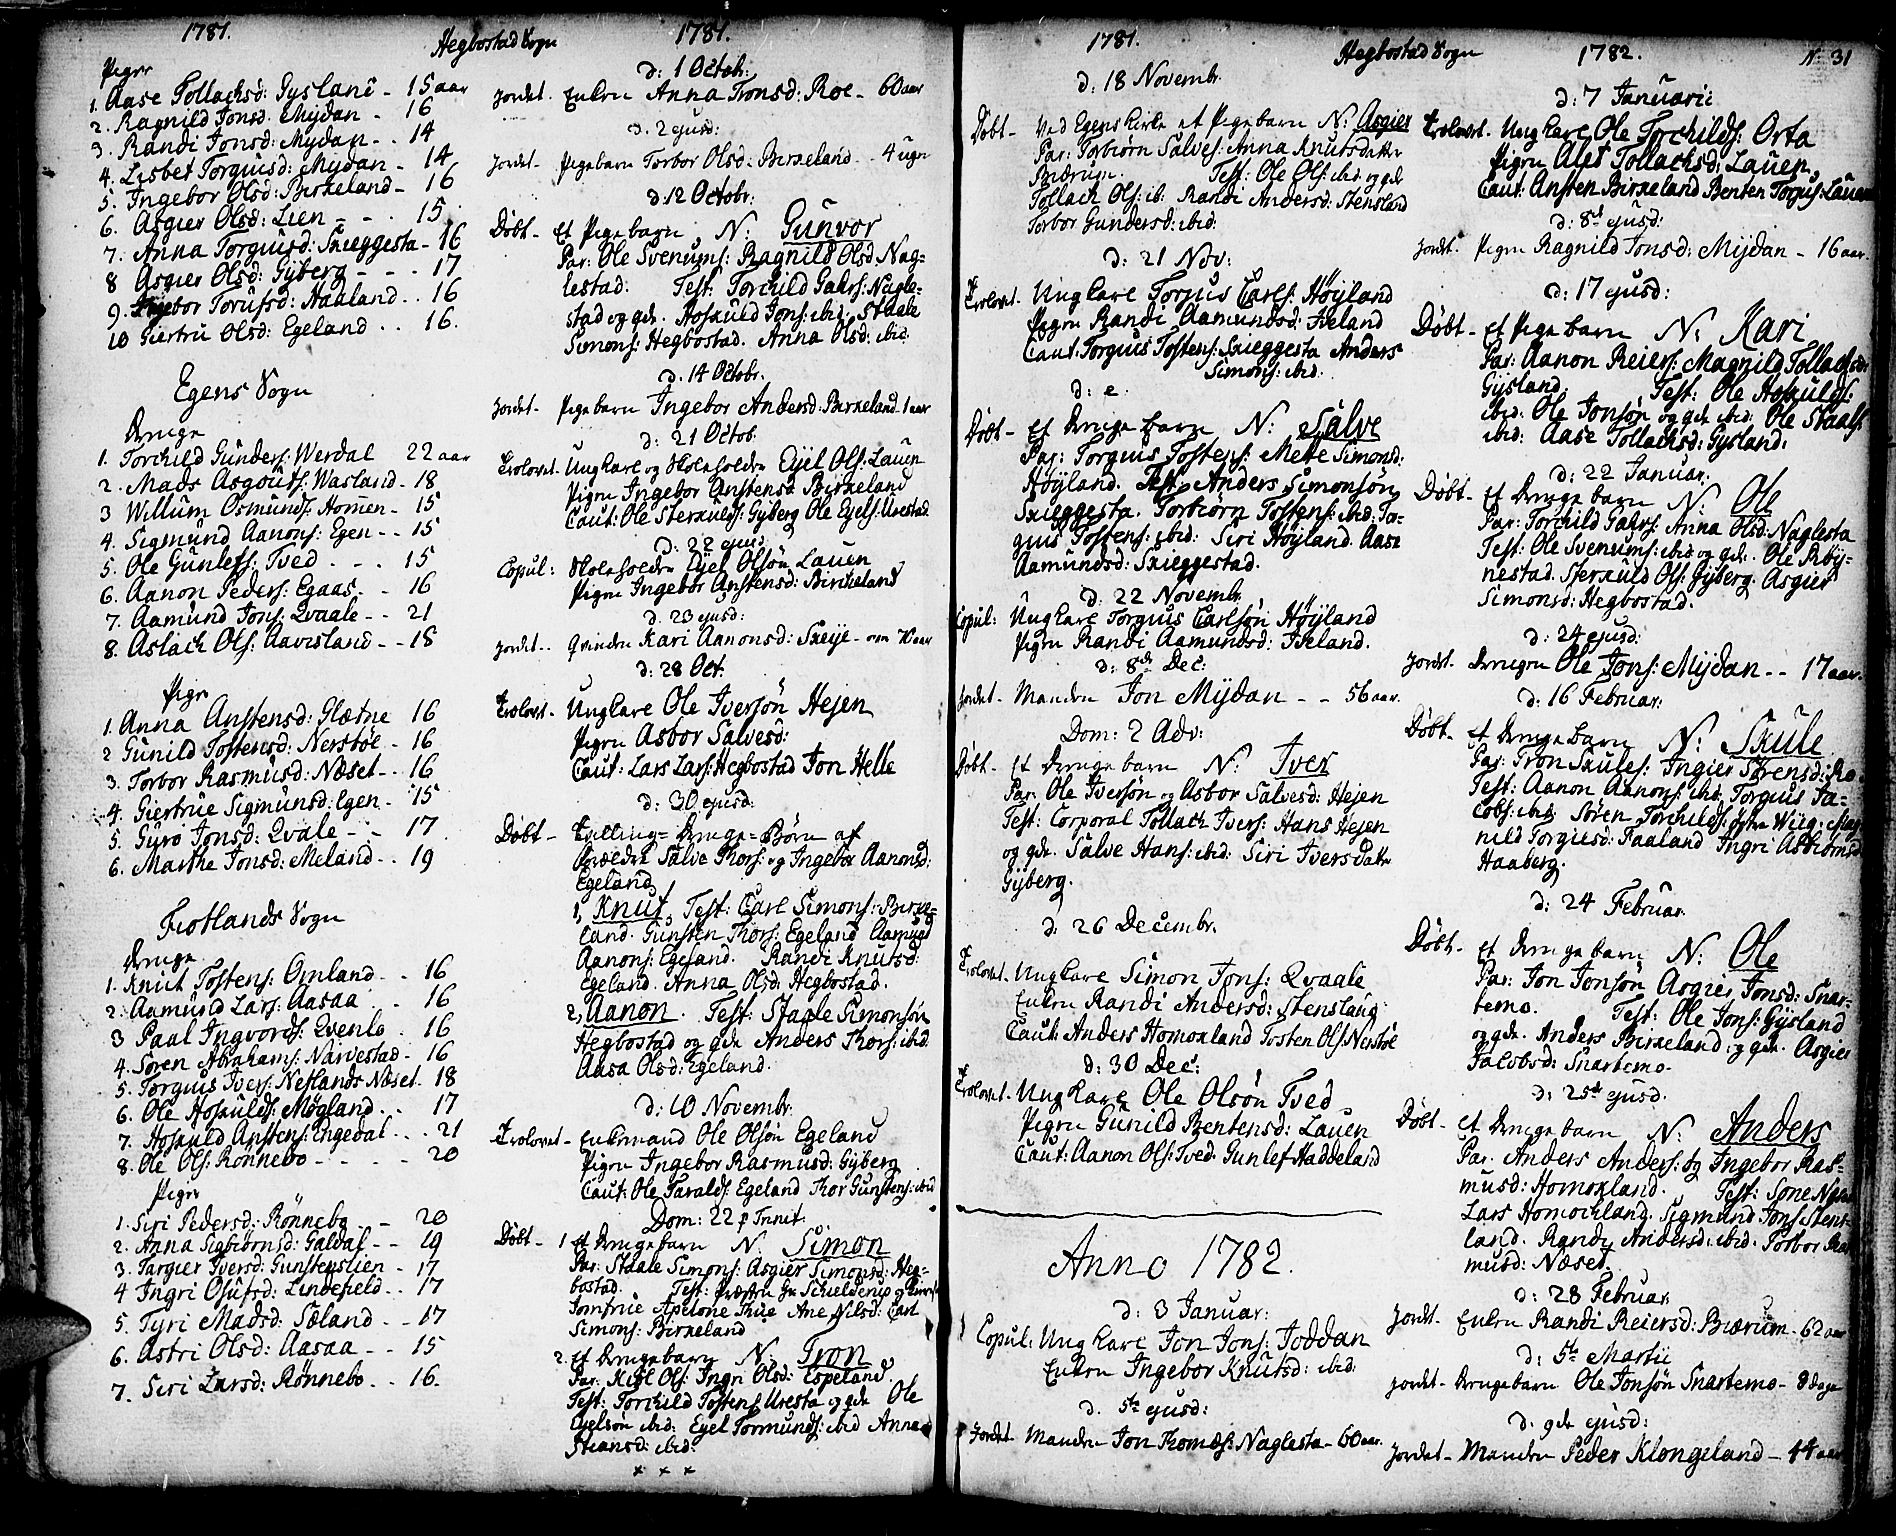 1781.
Hegbostad Sogn
1781.
Piger
1. Aase Tollachsd: Gysland - 15 aar
2. Ragnild Jonsd: Mydan - 16
3. Randi Jonsd: Mydan - 14
4. Lisbet Torguisd: Mydan - 14
5. Ingebor Olsd: Birkeland - 16
6. Asgier Olsd: Lien - - 15
7. Anna Torguisd: Skieggesta - 16
8 Asgier Olsd: Gyberg - - - 17
9. Ingebor Torufsd: Haaland . . 16
10 Giertru Olsd: Egeland . . 16.
Egens Sogn
Drenge
1. Torchild Gunders: Werdal 22 aar
2. Mads Asgouts: Wasland - 18
3 Willum Osmunds: Homen - 15
4. Sigmund Aanons: Egen - - 15
5. Ole Gunlefs: Tved . . . 15
6. Aanon Peders: Egaas - - 16
7. Aamund Jons: Qvaale - - 21
8. Aslach Ols: Aavisland - - 18
Piger
1. Anna Anstensd: Glætne 16
2 Gunild Tostensd: Nerstøl - 16
3. Torbor Rasmusd: Næset - - 16
4. Giertrue Sigmunsd: Egen - 15
5. Guro Jonsd: Qvale - - 17
6. Marthe Jonsd: Meland - . 19
Fiotlands Sogn
Drenge
1. Knut Tostens: Omland - . 16
2. Aamund Lars: Aasaa . - 16
3 Paal Ingvords: Qvenlo . 16
4. Søren Abrahams: Narvestad - 16
5. Torguis Ivers: Netlands Næset. 18
6. Ole Hoskulds: Møgland - . 17
7. Hoskuld Anstens: Engedal . . . 21
8. Ole Ols: Rønnebo - - - - 20
Piger
1. Siri Pedersd: Rønnebo - - 20
2. Anna Sigbiørnsd: Galdal - - 19
3. Targier Iversd: Gunstenslien - 17
4 Ingri Osufsd: Lindefield . . 17
5. Tyri Madsd: Sæland - - 17
6. Astri Olsd: Aasaa - - 15
7. Siri Larsd: Rønnebo . . 16.
d: 1 Octob:
Jordet. Enken Anna Tronsd: Roe - 60 aar
d. 2 ejusd:
Jordet - Pigebarn Torbor Olsd: Birkeland - - 4 uger
d. 12 Octobr:
Døbt - Et Pigebarn N. Gunvor
Par: Ole Svenums: Ragnild Olsd: Nag=
lestad. Test: Torchild Gahrs: Nagle=
stad og gde. Hoskuld Jons: ibid: Staale
Simons: Hegbostad. Anna Olsd: ibid.
d. 14 Octobr.
Jordet - Pigebarn Ingebor Andersd: Birkeland 1 aar
d: 21 Octob.
Trolovet. Ungkarl og Skoleholder Eyel Ols: Lauen
Pigen Ingebor Anstensd: Birkeland
Caut: Ole Sterkulds: Gyberg Ole Eyels: Urestad.
d: 22 ejusd.
Copul: Skoleholder Eyel Olsøn Lauen
Pigen Ingebor Anstensd: Birkeland
d. 23 ejusd:
Jordet - . Qvinden Kari Aanonsd: Skeye - om 70 aar
d: 28 Oct.
Trolovet. Ungkarl Ole Iversøn Hejen
Pigen Asbor Salvesd:
Caut: Lars Lars: Hegbostad Jon Helle
d: 30 ejusd:
Døbt - Tvilling = Drenge = Børn af
Forældre Salve Thors: og Ingebor Aanonsd:
Egeland
1, Knut, Test: Carl Simons: Birke=
land. Gunsten Thors: Egeland Aamund
Aanons: Egeland. Randi Knutsd:
Egeland. Anna Olsd: Hegbostad.
2, Aanon. Test: Staale Simonsøn
Hegbostad og gde Anders Thors: ibid
Aasa Olsd: Egeland.
d: 10 Novembr:
Trolovet - Enkemand Ole Olsøn Egeland
Pigen Ingebor Rasmusd: Gyberg
Caut: Ole Taralds: Egeland Thor Gunstens: ibid
Dom: 22 p Trinit.
Døbt - 1 et Drengebarn N. Simon
Par: Staale Simons: Asgier Simonsd: Heg=
bostad. Test: Præsten Hr Schielderup og
Jomfrue Apelone Thue Ane Nilsd: Carl
Simons: Birkeland
2. Et Drengebarn N. Tron
Par: Kitil Ols: Ingri Olsd: Espeland.
Test: Torchild Tostens: Uresta og gde Ole
Eyelsøn ibid: Eyel Tormunds: ibid Anna
Steansd: ibid:
x x x
1781.
Hegbostad Sogn
1782.
N. 31
d: 18 Novembr.
Døbt - Ved Egens Kirke et Pigebarn N: Asgier
Par: Torbiørn Salves: Anna Knutsdatter
Birkrum. Test: Ole Ols: ibid og gde
Tollach Ols: ib. Randi Andersd: Stensland
Torbor Gundersd: ibid:
d: 21 Nov:
Trolovet. Ungkarl Torjus Carls: Høyland
Pigen Randi Aamundsd: Ekeland
Caut: Torguis Tostens: Skieggesta Anders
Simons: ibid:
d: e.
Døbt - Et Drengebarn N: Salve
Par: Torguis Tostens: Mette Simonsd:
Høyland. Test: Anders Simonsøn
Skieggesta. Torbiørn Tostens: ibid: Tor=
guis Tostens: ibid: Siri Høyland. Aase
Aamundsd: Skieggestad.
d: 22 Novembr.
Copul: Ungkarl Torguis Carlsøn Høyland
Pigen Randi Aamundsd: Ekeland.
d: 8de Dec:
Jordet - Manden Jon Mydan - - 56 aar.
Dom: 2 Adv:
Døbt - Et Drengebarn N: Iver
Par: Ole Iversøn og Asbor Salvesd: Hejen
Test: Corporal Tollach Ivers: Hans Hejen
og gde. Salve Hans: ibid: Siri Ivers Datter
Gyberg.
d. 26 Decembr.
Trolovet. Ungkarl Simon Jons: Qvaale
Enken Randi Andersd: Stensland
Caut: Anders Homorland Tosten Ols: Nerstøl
d: 30 Dec:
Trolovet - Ungkarl Ole Olsøn Tved
Pigen Gunild Bentensd: Lauen
Caut: Aanon Ols: Tved. Gunlef Haddeland
Anno 1782.
d: 3 Januar:
Copul: Ungkarl Jon Jons: Joddan
Enken Ingebor Knutsd: ibid:
d. 5te ejusd:
Jordet - Manden Jon Thomæs: Naglesta - 60 aar.
d: 7 Januarii:
Trolovet. Ungkarl Ole Torchilds: Orta
Pigen Ales Tollachsd: Lauen
Caut: Ansten Birkeland Benten Torguis: Lauen
d: 8d ejusd:
Jordet. Pigen Ragnild Jonsd: Mydan - 16 aar.
d: 17 ejusd:
Døbt - Et Pigebarn N: Kari
Par: Aanon Reiers: Magnild Tollachsd:
Gysland. Test: Ole Hoskulds:
ibid: Ole Jonsøn og gde ibid: Ole Staals:
ibid: Aase Tollachsd: Gysland.
d: 22 Januar.
Døbt - Et Drengebarn N: Ole
Par: Torchild Gahrs: Anna Olsd: Naglesta
Test: Ole Svenums: ibid og gde. Ole Røy=
nestad. Sterkuld Ols: Gyberg Asgier
Simonsd: Hegbostad.
d: 24 ejusd:
Jordet. Drengen Ole Jons: Mydan - - 17 aar.
d: 16 Februar:
Døbt. Et Drengebarn N: Skule
Par: Tron Skules: Ingier Sørensd: Ro
Test: Aanon Aanons: ibid: Torguis Ja=
cobs: ibid: Søren Torchilds: Wiig: Mag=
nild Torgiesd: Faaland Ingri Asbiørnsd
Haaberg.
d: 24 Februar.
Døbt - Et Drengebarn N. Ole
Par: Jon Jonsøn Asgier Jonsd: Snar=
temo. Test: Ole Jons: Gysland
og gde. Anders Birkeland og gde. Asgier
Jacobsd: Snartemo.
d: 25de ejusd.
Døbt - Et Drengebarn N: Anders
Par. Anders Anders: og Ingebor Ras=
musd: Homorland. Test: Sone
Lars Homochland. Sigmund Jons: Stens=
land. Randi Andersd: ibid. Torbor Ras
musd: Næset.
d: 28 Februar.
Jordt. Enken Randi Reiersd: Biærum - 62 aar
d: 5te Martii
Jordet - Drengebarn Ole Jonsøn Snartemo - 8 dage
d: 9de ejusd:
Jordet - Manden Peder Klongeland - 44 aar